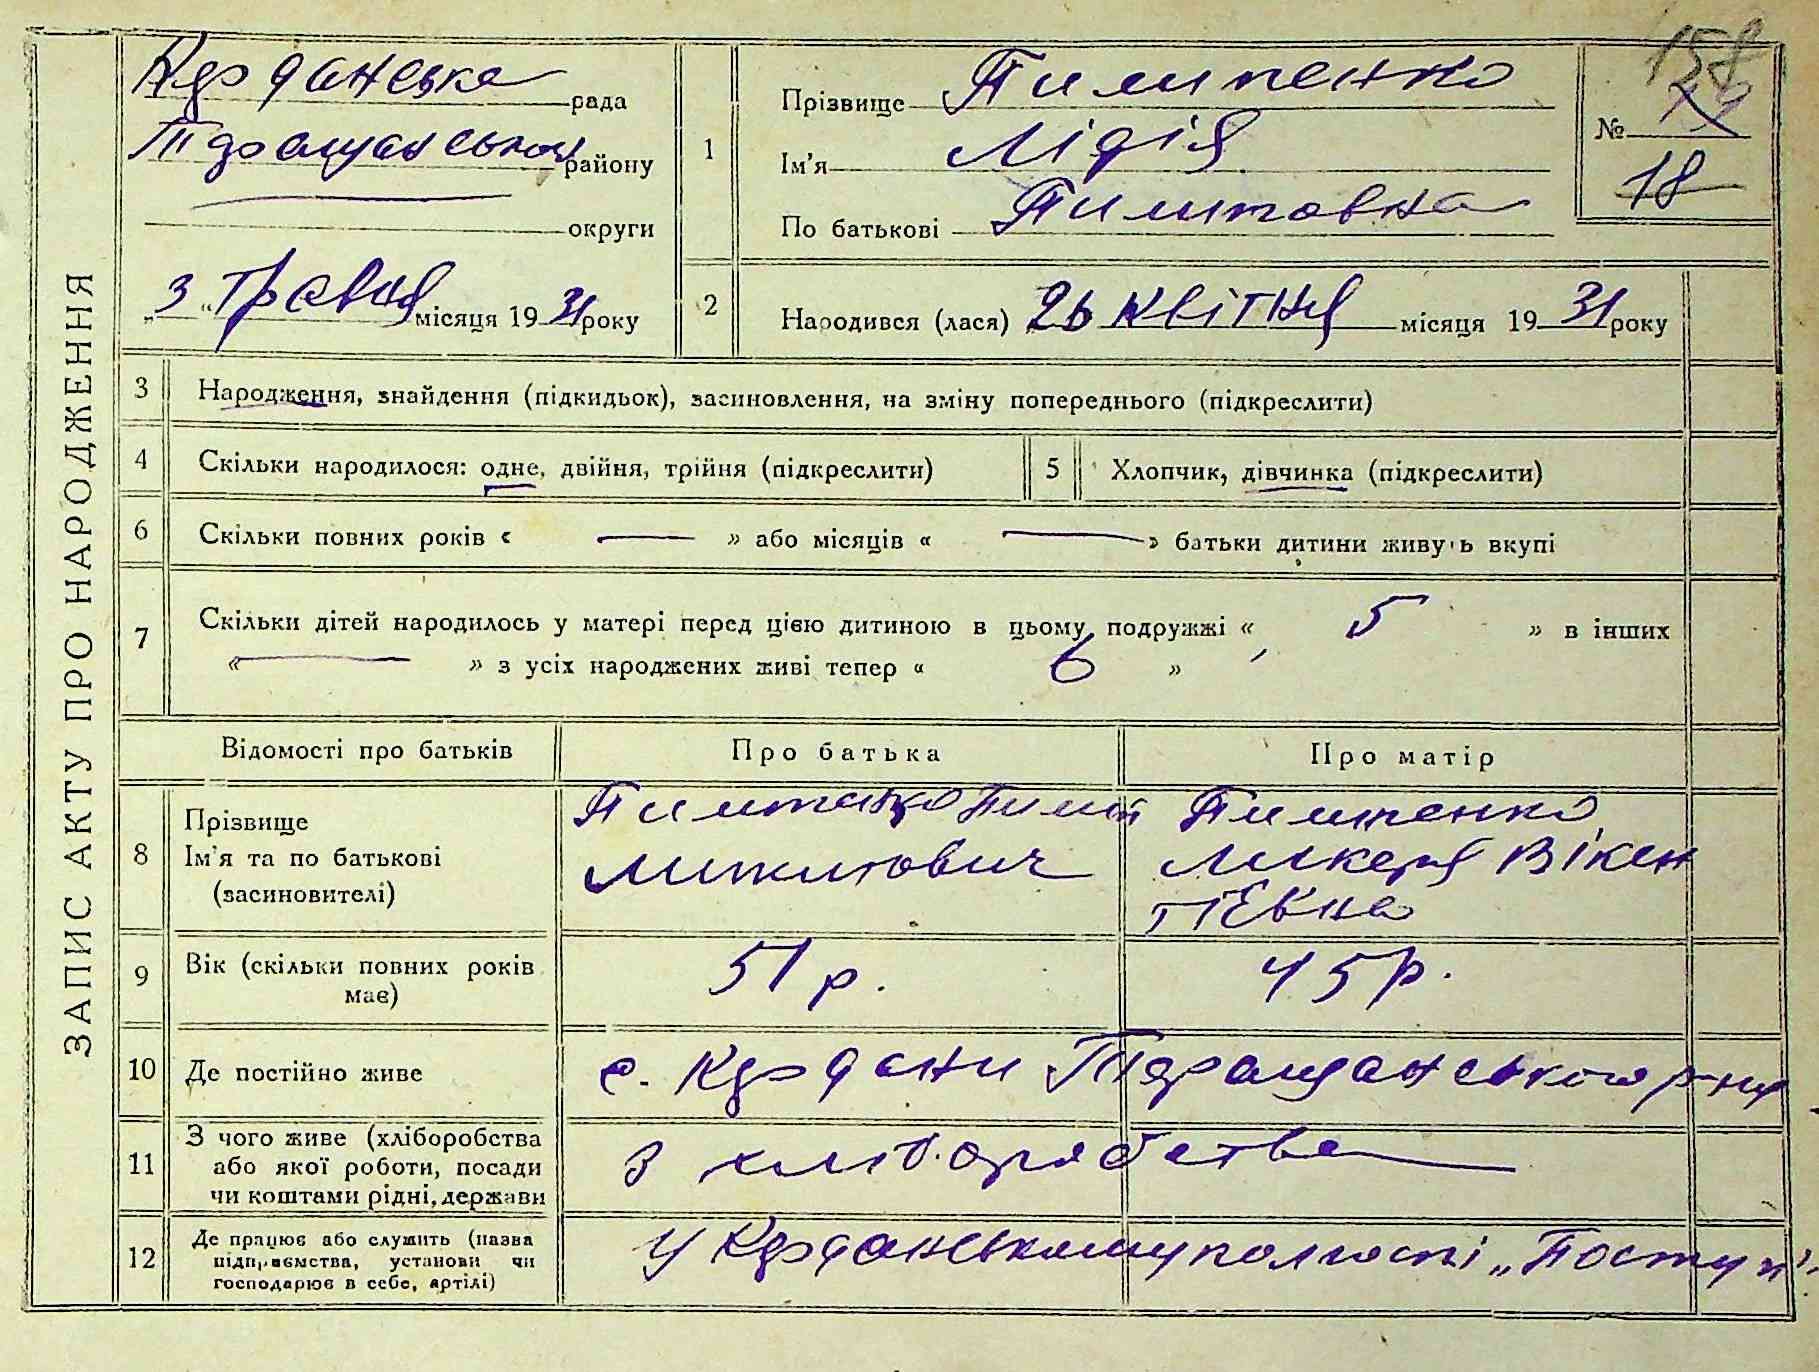 ЗАПИС АКТУ ПРО НАРОДЖЕННЯ
Кірданська рада
Таращанського району
округи
„3“ Травня місяця 1931 року
1
Прізвище Пилипенко
Ім'я Лідія
По батькові Пилиповна
158
№
18
2 Народився (лася) 26 квітня місяця 1931 року
3 Народження, знайдення (підкидьок), засиновлення, на зміну попереднього (підкреслити)
4 Скільки народилося: одне, двійня, трійня (підкреслити)
5 Хлопчик, дівчинка (підкреслити)
6 Скільки повних років « — » або місяців « — » батьки дитини живуть вкупі
7 Скільки дітей народилось у матері перед цією дитиною в цьому подружжі « 5 » в інших
« — » з усіх народжених живі тепер « 6 »
Відомості про батьків Про батька Про матір
8 Прізвище
Ім'я та по батькові
(засиновителі)
Пилипенко Пилип
Пилипенко
Ликера Вікен
тіевна
9 Вік (скільки повних років
має)
51 р. 45 р.
10 Де постійно живе с. Кірдани Таращанського р-ну
11 З чого живе (хліборобства
або якої роботи, посади
чи коштами рідні, держави
з хліборобства
12 Де працює або служить (назва
підприємства, установи чи
господарює в себе, артілі)
у Кірданському колгоспі „Поступ"